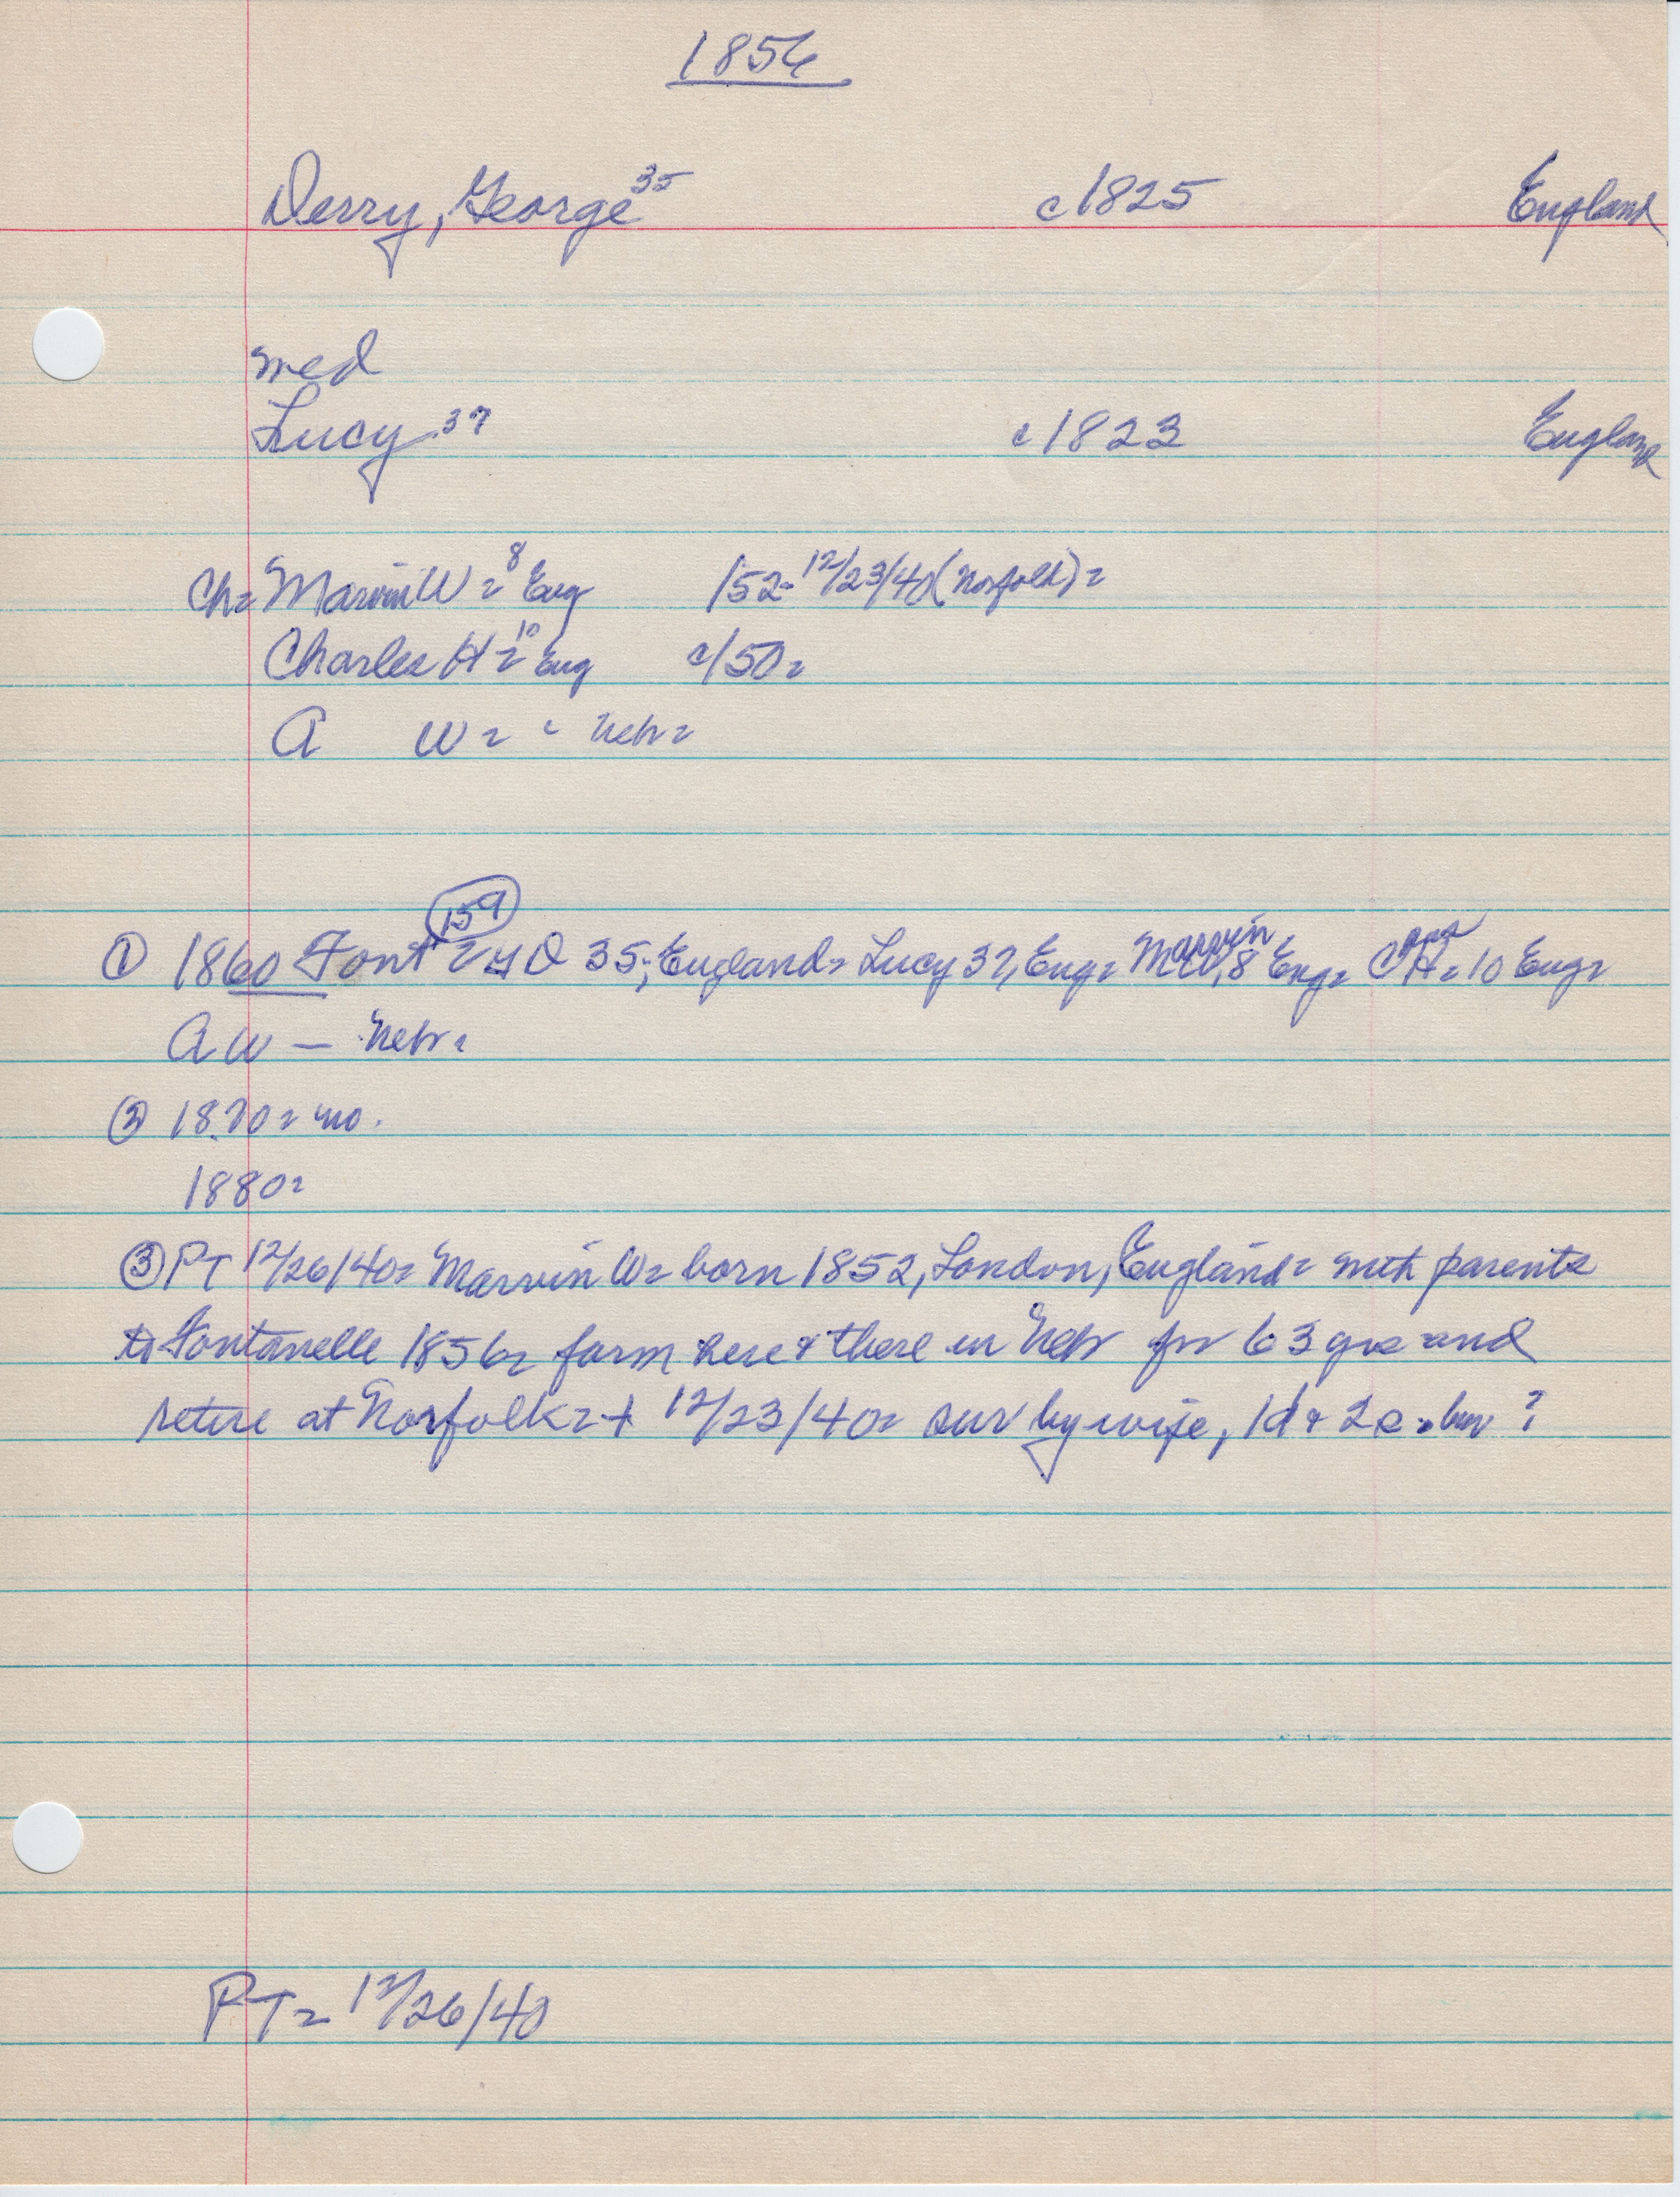 1856
Derry, George 35 c1825 England
med
Lucy 37 c1823 England
Ch= Marvin W= 8 Eng 152- 12/23/40 (Norfolk)=
Charles H= 10 Eng c/50=
A W= c Nebr=
① 1860 Font 159 = G D 35, England= Lucy 37, Eng= Marvin MW, 8 Eng= C H= 10 Eng=
A W — Nebr=
② 1870= no.
1880=
③ PT 12/26/40= Marvin W= born 1852, London, England= with parents
to Fontanelle 1856= farm here & there in Nebr for 63 yrs and
retire at Norfolk= + 12/23/40= sur by wife, 1d & 2s = bur ?
PT= 12/26/40